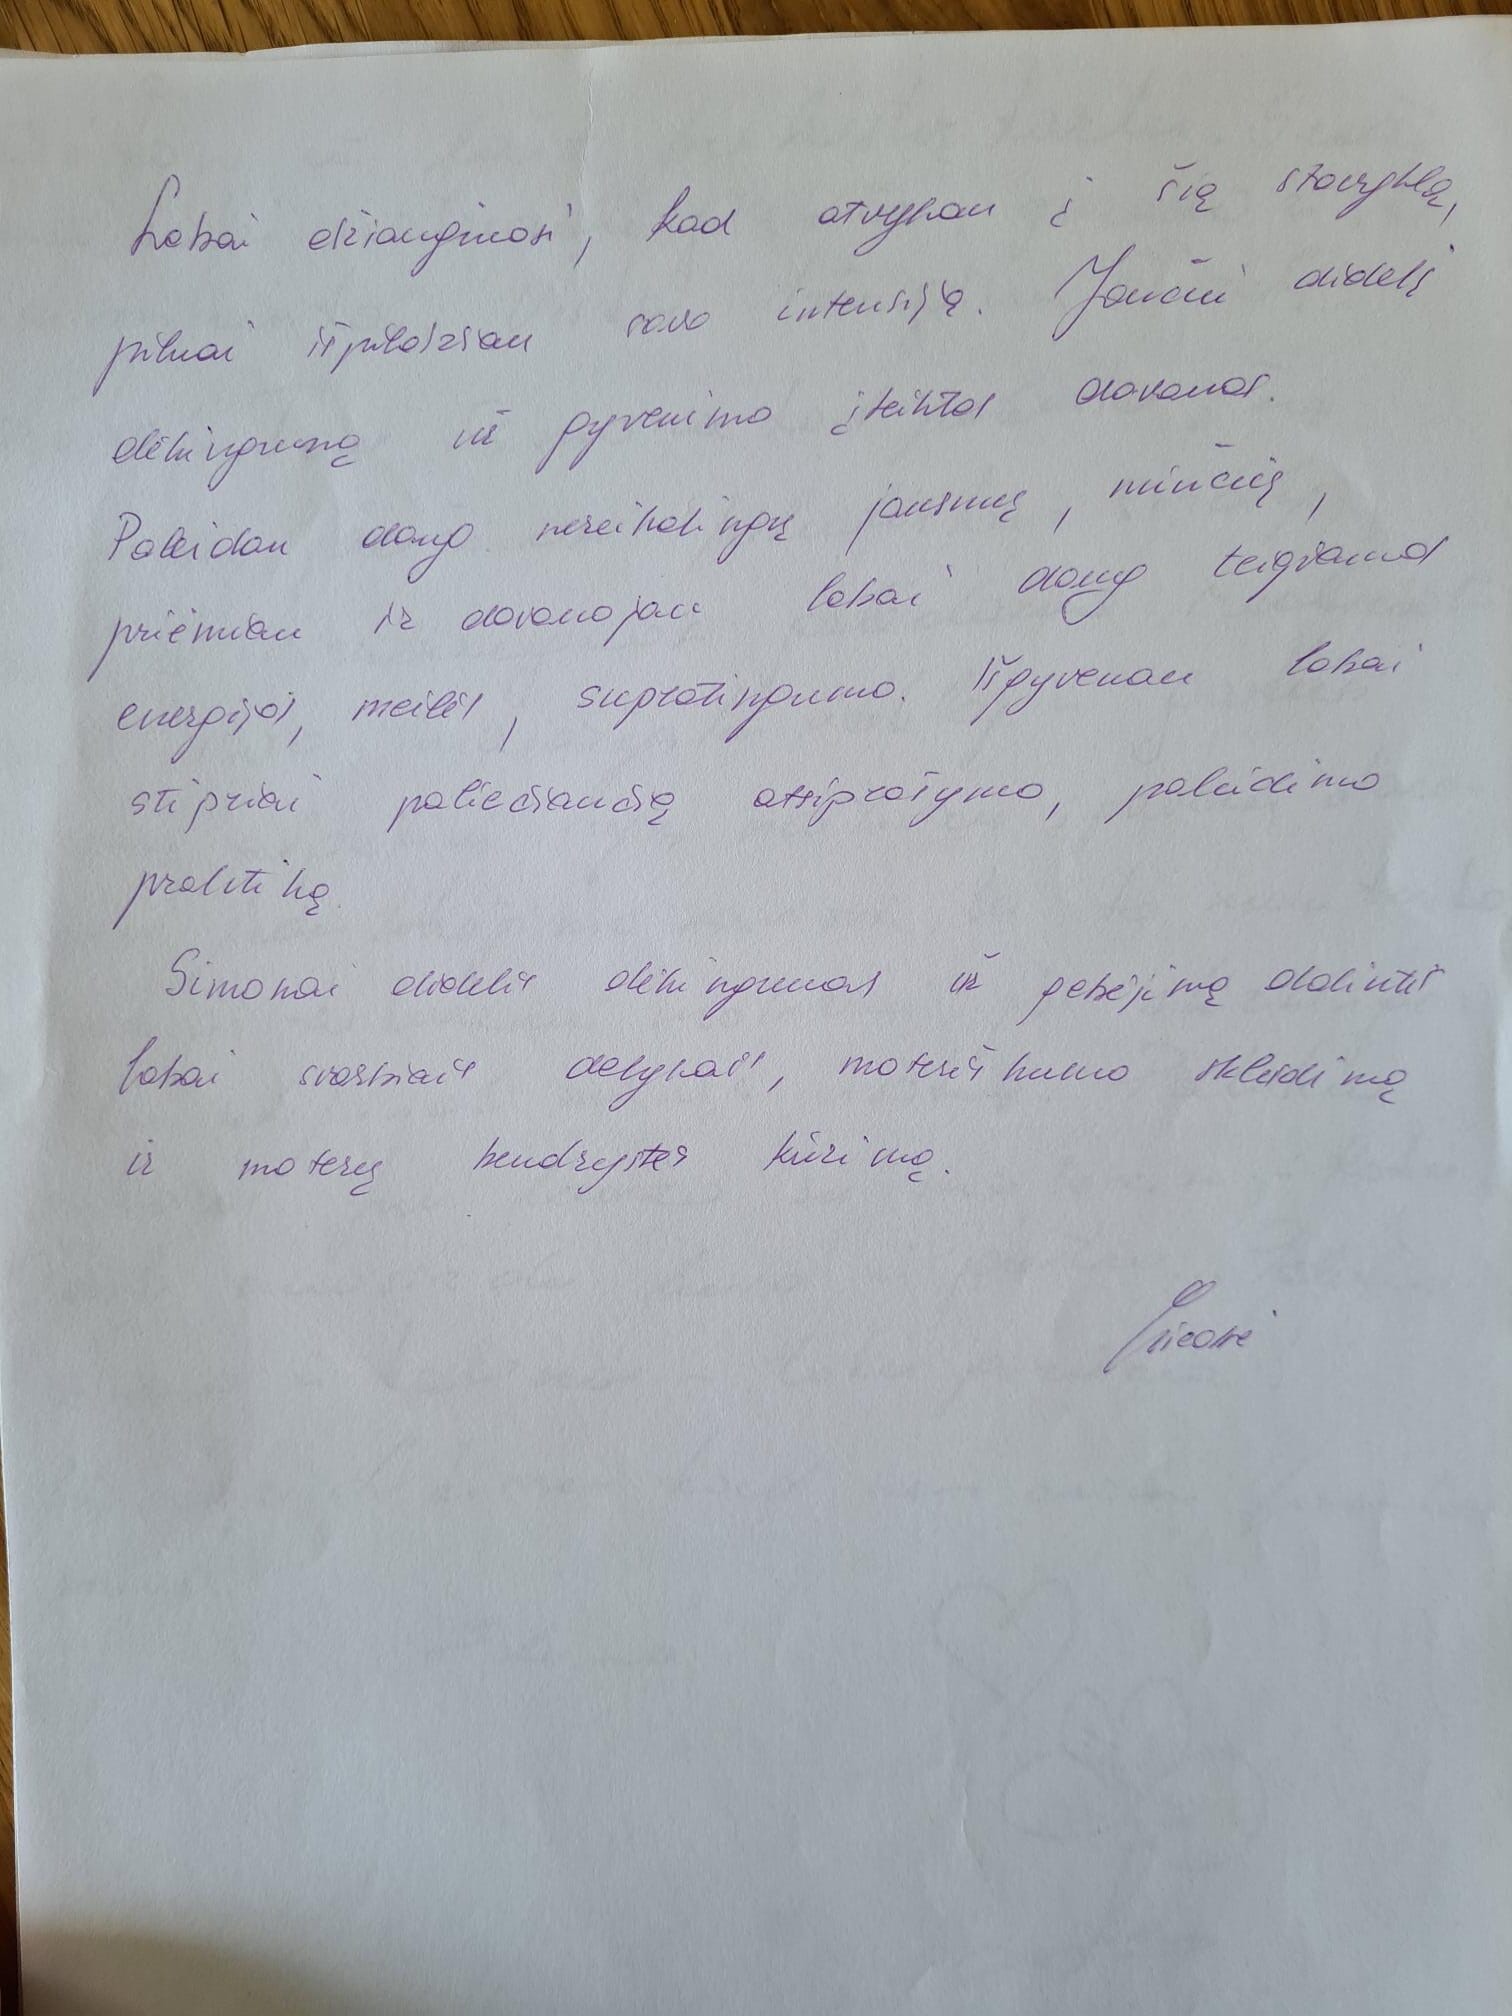 Labai džiauginosi, kad atvykau į šią stovyklą,
pilnai išpildžiau savo intensiją. Jaučiu didelį
dėkingumą už gyvenimo įteiktas dovanas.
Paleidau daug nereikalingų jausmų, minčių,
priėmiau ir dovanojau labai daug teigiamos
energijos, meilės, supratingumo. Išgyvenau labai
stipriai paliečiančią atsiprašymo, paleidimo
praktiką.
Simonai didelis dėkingumas už gebėjimą dalintis
labai svarbiais dalykais, moteriškumo skleidimą
ir moterų bendrystės kūrimą.